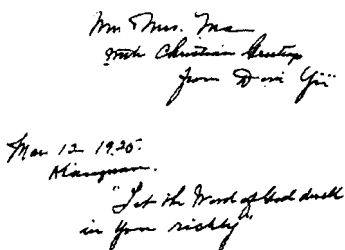 Mr. Mrs. Ma
with Christian Greetings
from Dora Yü
Mar 12 1925.
Kiangwan.
"Let the Word of God dwell
in you richly"